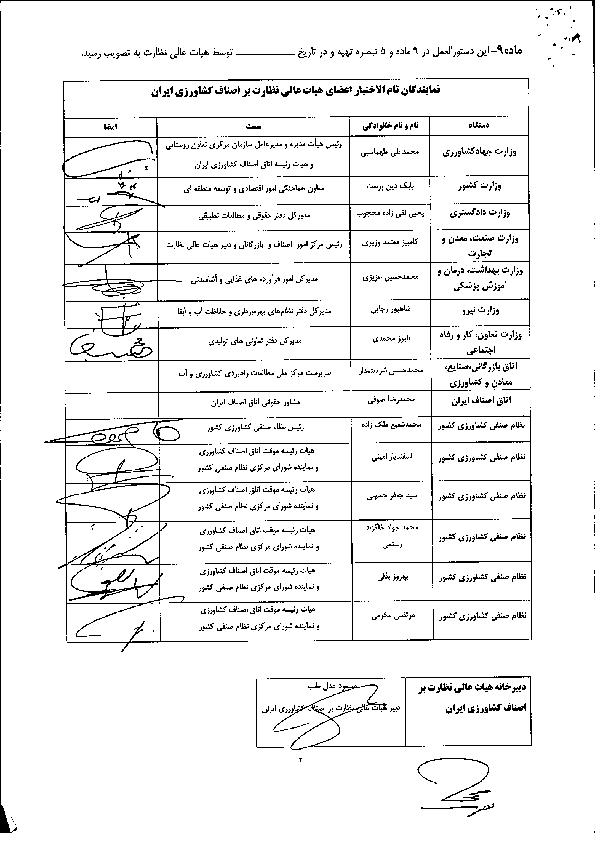 ماده۹- این دستورالعمل در ۹ ماده و ۵ تبصره تهیه و در تاریخ ــــــــــــ توسط هیات عالی نظارت به تصویب رسید.
نمایندگان تام الاختیار اعضای هیات عالی نظارت بر اصناف کشاورزی ایران
دستگاه نام و نام خانوادگی سمت امضا
وزارت جهادکشاورزی محمدعلی طهماسبی رئیس هیأت مدیره و مدیرعامل سازمان مرکزی تعاون روستایی
و هیات رئیسه اتاق اصناف کشاورزی ایران
وزارت کشور بابک دین پرست معاون هماهنگی امور اقتصادی و توسعه منطقه ای
وزارت دادگستری یحیی تقی زاده محجوب مدیرکل دفتر حقوقی و مطالعات تطبیقی
وزارت صنعت، معدن و کامبیز معتمد وزیری رئیس مرکز امور اصناف و بازرگانان و دبیر هیات عالی نظارت
تجارت
وزارت بهداشت، درمان و محمدحسین عزیزی مدیرکل امور فرآورده های غذایی و آشامیدنی
آموزش پزشکی
وزارت نیرو شاهپور رجایی مدیرکل دفتر نظام‌های بهره‌برداری و حفاظت آب و آبفا
وزارت تعاون، کار و رفاه محمدی مدیرکل دفتر تعاونی های تولیدی
اجتماعی
اتاق بازرگانی،صنایع، محمدحسین شریعتمدار سرپرست مرکز ملی مطالعات راهبردی کشاورزی و آب
معادن و کشاورزی
اتاق اصناف ایران محمدرضا صوفی مشاور حقوقی اتاق اصناف ایران
نظام صنفی کشاورزی کشور محمدشفیع ملک زاده رئیس نظام صنفی کشاورزی کشور
نظام صنفی کشاورزی کشور اسفندیار امینی هیات رئیسه موقت اتاق اصناف کشاورزی
و نماینده شورای مرکزی نظام صنفی کشور
نظام صنفی کشاورزی کشور سید جعفر حسینی هیات رئیسه موقت اتاق اصناف کشاورزی
و نماینده شورای مرکزی نظام صنفی کشور
نظام صنفی کشاورزی کشور محمد جواد هیات رئیسه موقت اتاق اصناف کشاورزی
رستمی و نماینده شورای مرکزی نظام صنفی کشور
نظام صنفی کشاورزی کشور بهروز هیات رئیسه موقت اتاق اصناف کشاورزی
و نماینده شورای مرکزی نظام صنفی کشور
نظام صنفی کشاورزی کشور مرتضی مکرمی هیات رئیسه موقت اتاق اصناف کشاورزی
و نماینده شورای مرکزی نظام صنفی کشور
دبیرخانه هیات عالی نظارت بر مسعود عدل طلب
اصناف کشاورزی ایران دبیر هیات عالی نظارت بر اصناف کشاورزی ایران